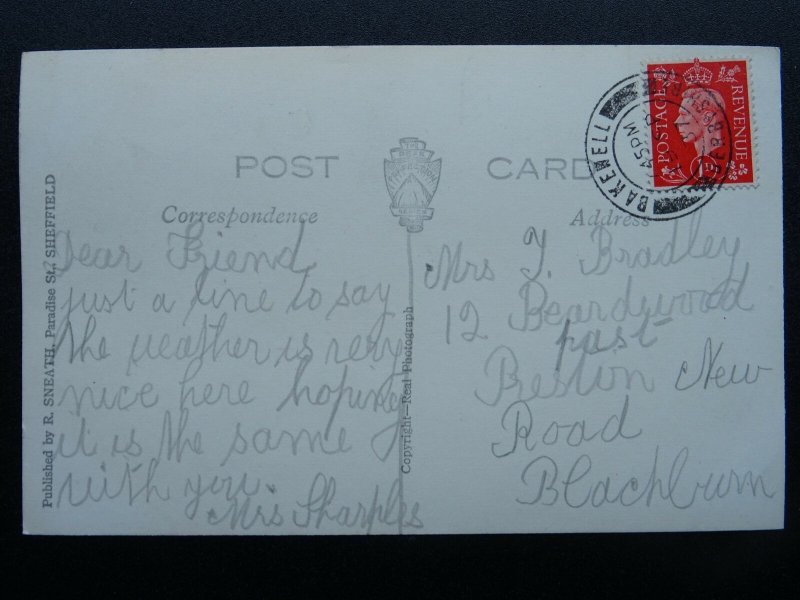 POST CARD
Correspondence
Address
Dear Friend
just a line to say
the weather is very
nice here hoping
it is the same
with you.
Mrs Sharples
Mrs T. Bradley
12 Beardswood
past
Preston New
Road
Blackburn
Published by R. SNEATH, Paradise St., SHEFFIELD
Copyright—Real Photograph
THE PEAK
SERIES
POSTAGE REVENUE
1D
BAKEWELL
DERBYSHIRE
45PM